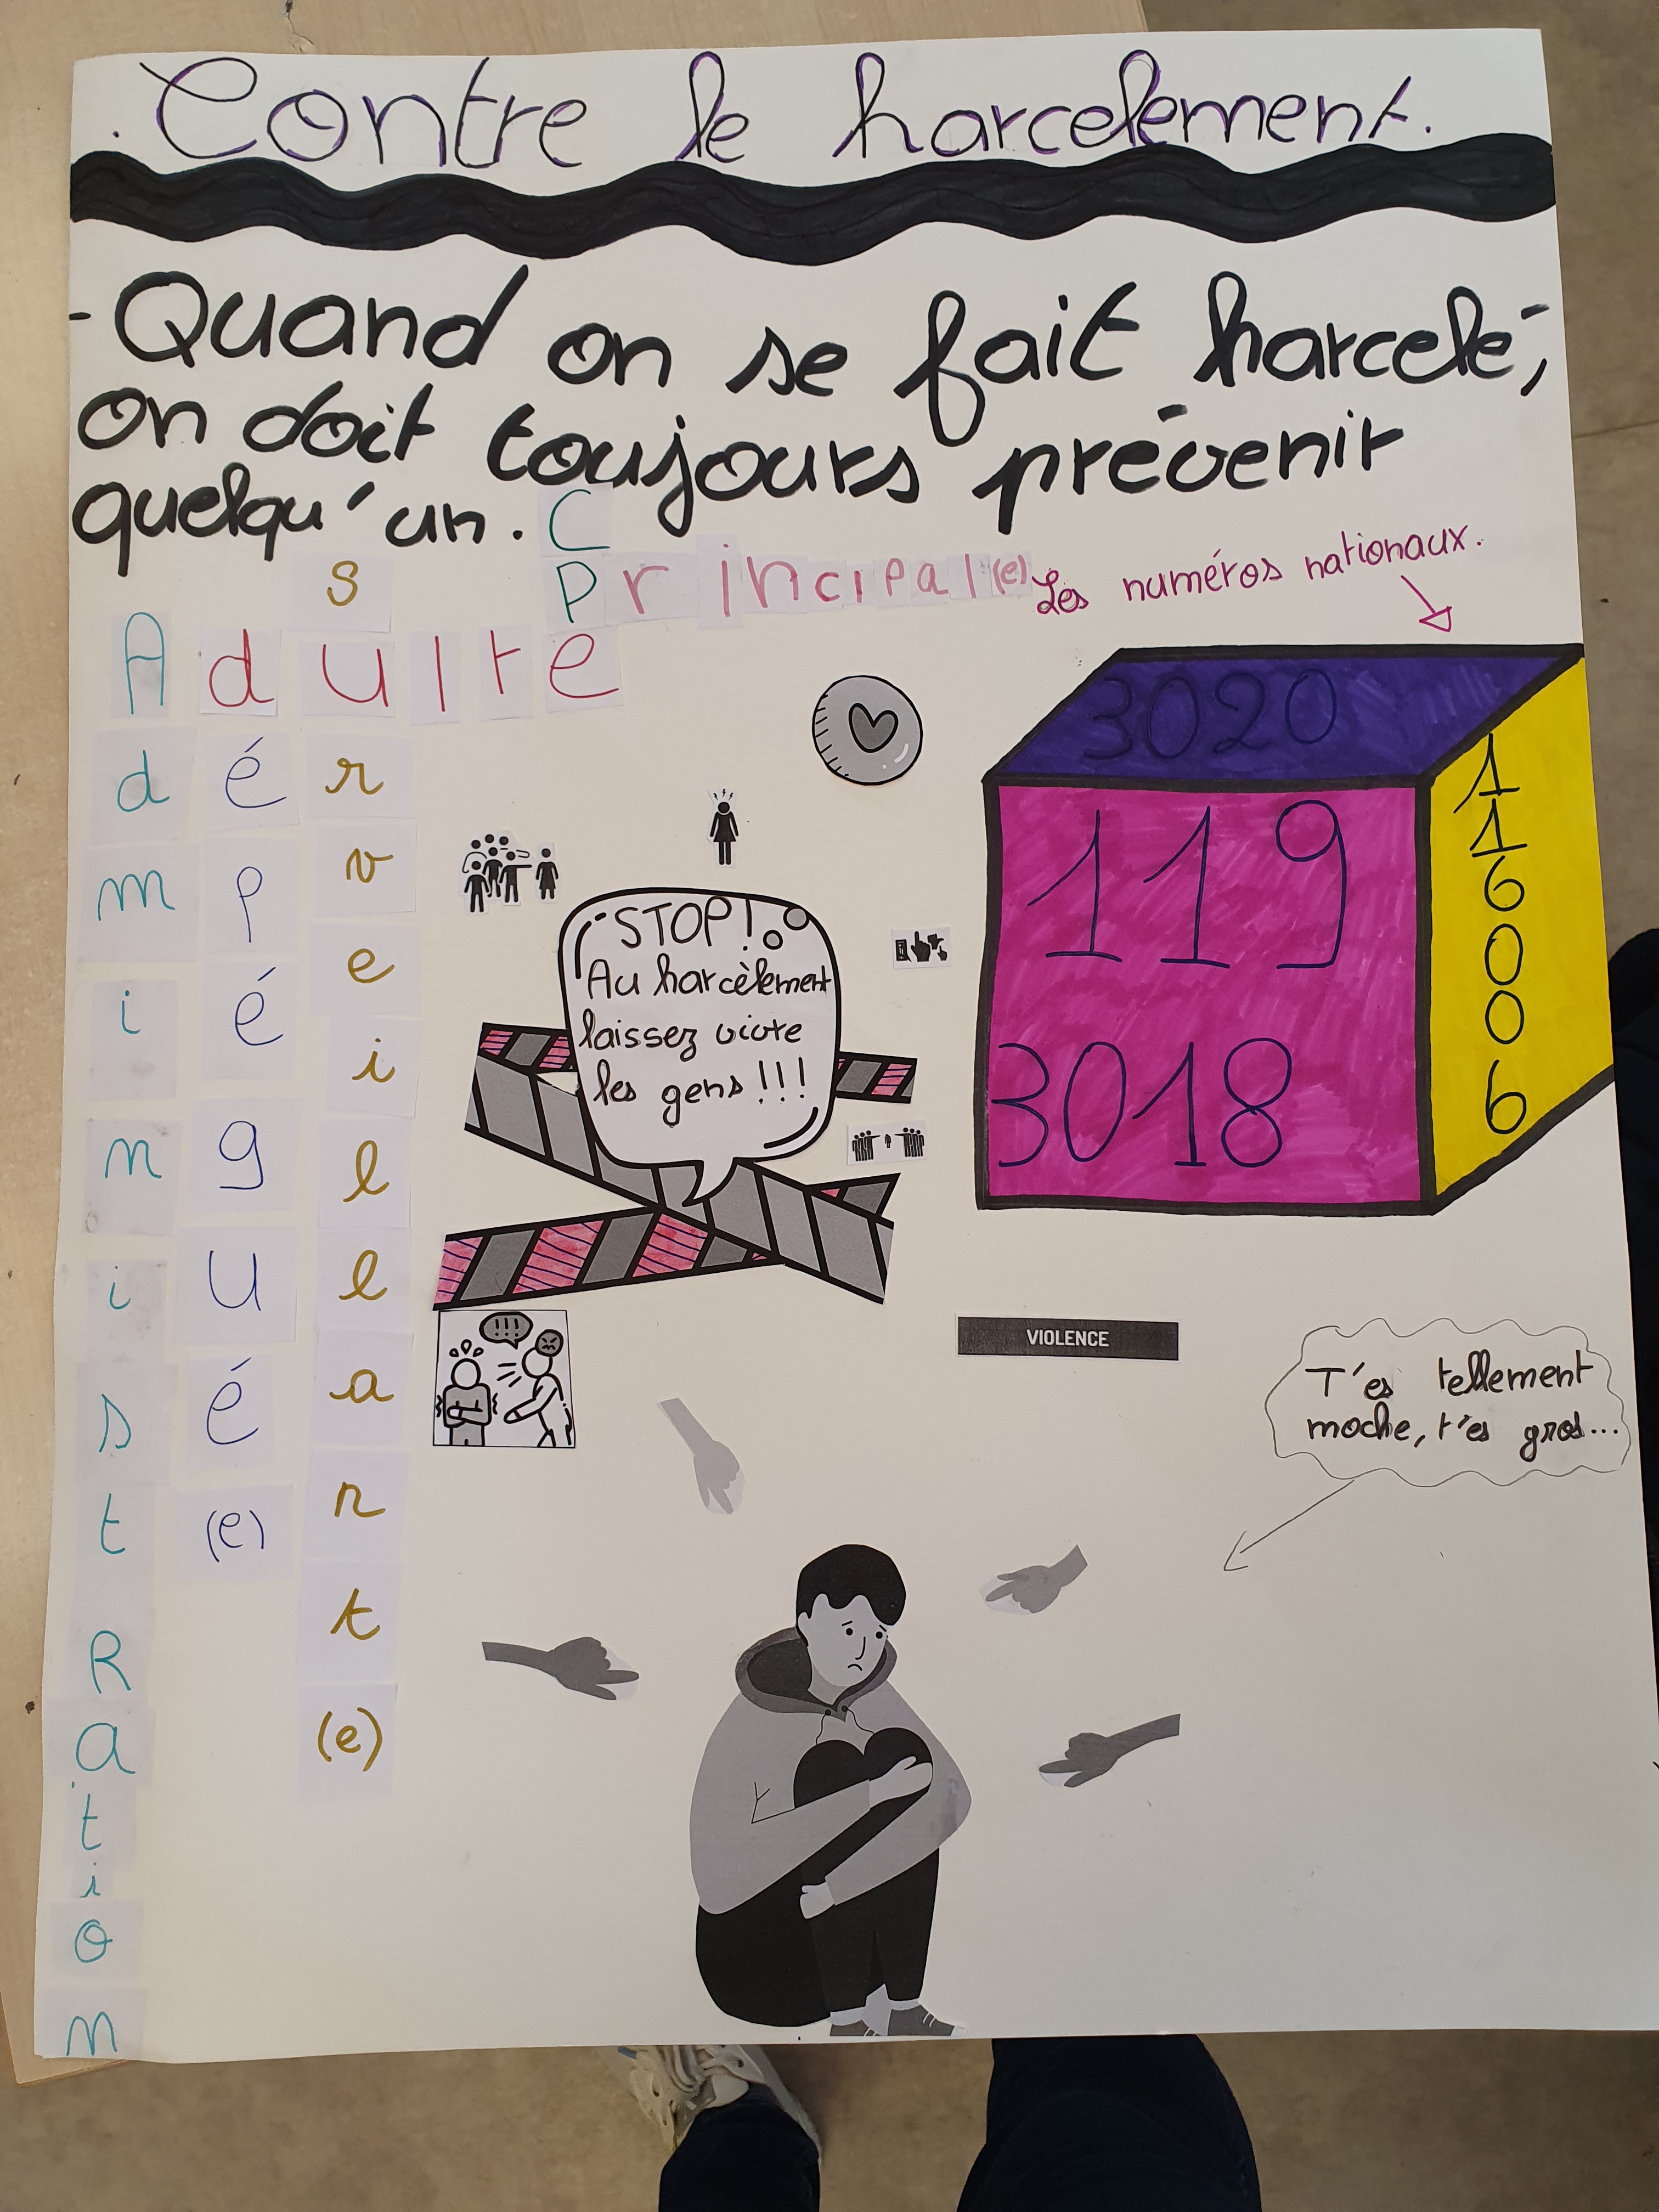 . Contre le harcelement.
- Quand on se fait harcelé,
on doit toujours prévenir
quelqu'un.
CPE
Principal(e)
Les numéros nationaux.
surveillant(e)
Adulte
AdministRation
délégué(e)
3020
119
3018
116006
STOP!
Au harcèlement
laissez vivre
les gens !!!
!!!
VIOLENCE
T'es tellement
moche, t'es gros...